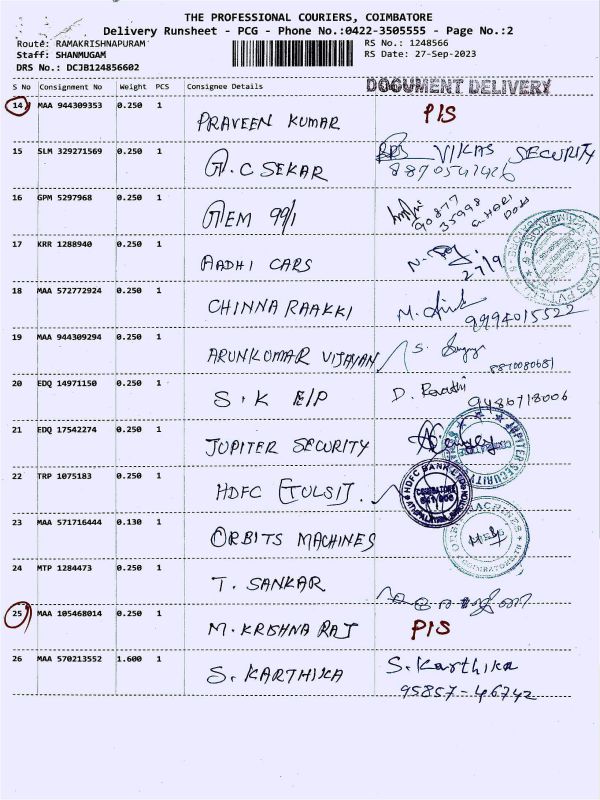 THE PROFESSIONAL COURIERS, COIMBATORE
Delivery Runsheet - PCG - Phone No.:0422-3505555 - Page No.:2
Route: RAMAKRISHNAPURAM RS No.: 1248566
Staff: SHANMUGAM RS Date: 27-Sep-2023
DRS No.: DCJB124856602
DOCUMENT DELIVERY
S No Consignment No Weight PCS Consignee Details
14 MAA 944309353 0.250 1 PRAVEEN KUMAR PIS
15 SLM 329271569 0.250 1 A.C SEKAR VIKAS SECURITY
8870541426
16 GPM 5297968 0.250 1 GEM 99/1 90877
35998 G.HARI
17 KRR 1288940 0.250 1 AADHI CARS 27/9
18 MAA 572772924 0.250 1 CHINNA RAAKKI M.
9994015522
19 MAA 944309294 0.250 1 ARUNKUMAR VIJAYAN S.
8870080681
20 EDQ 14971150 0.250 1 S.K E/P D. Revathi
9486718006
21 EDQ 17542274 0.250 1 JUPITER SECURITY
JUPITER SECURITY
22 TRP 1075183 0.250 1 HDFC (TULSI).
HDFC BANK LTD
COIMBATORE
23 MAA 571716444 0.130 1 ORBITS MACHINES
24 MTP 1284473 0.250 1 T. SANKAR
25 MAA 105468014 0.250 1 M.KRISHNA RAJ PIS
26 MAA 570213552 1.600 1 S. KARTHIKA S.Karthika
95857-46742